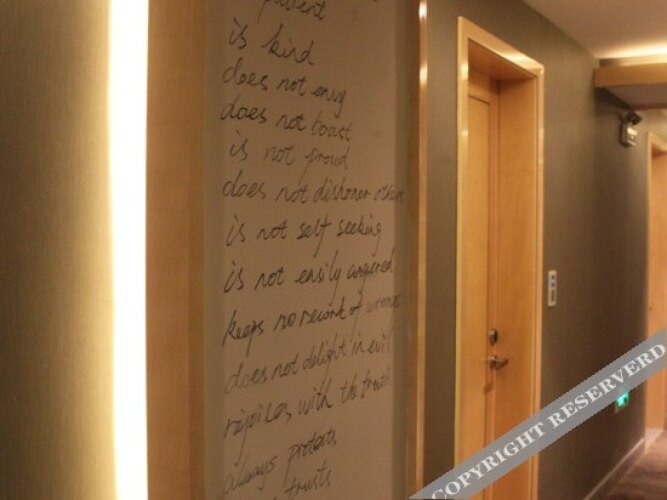 patient
is kind
does not envy
does not boast
is not proud
does not dishonor others
is not self seeking
is not easily angered
keeps no record of wrongs
does not delight in evil
rejoices with the truth
always protects
trusts
COPYRIGHT RESERVERD